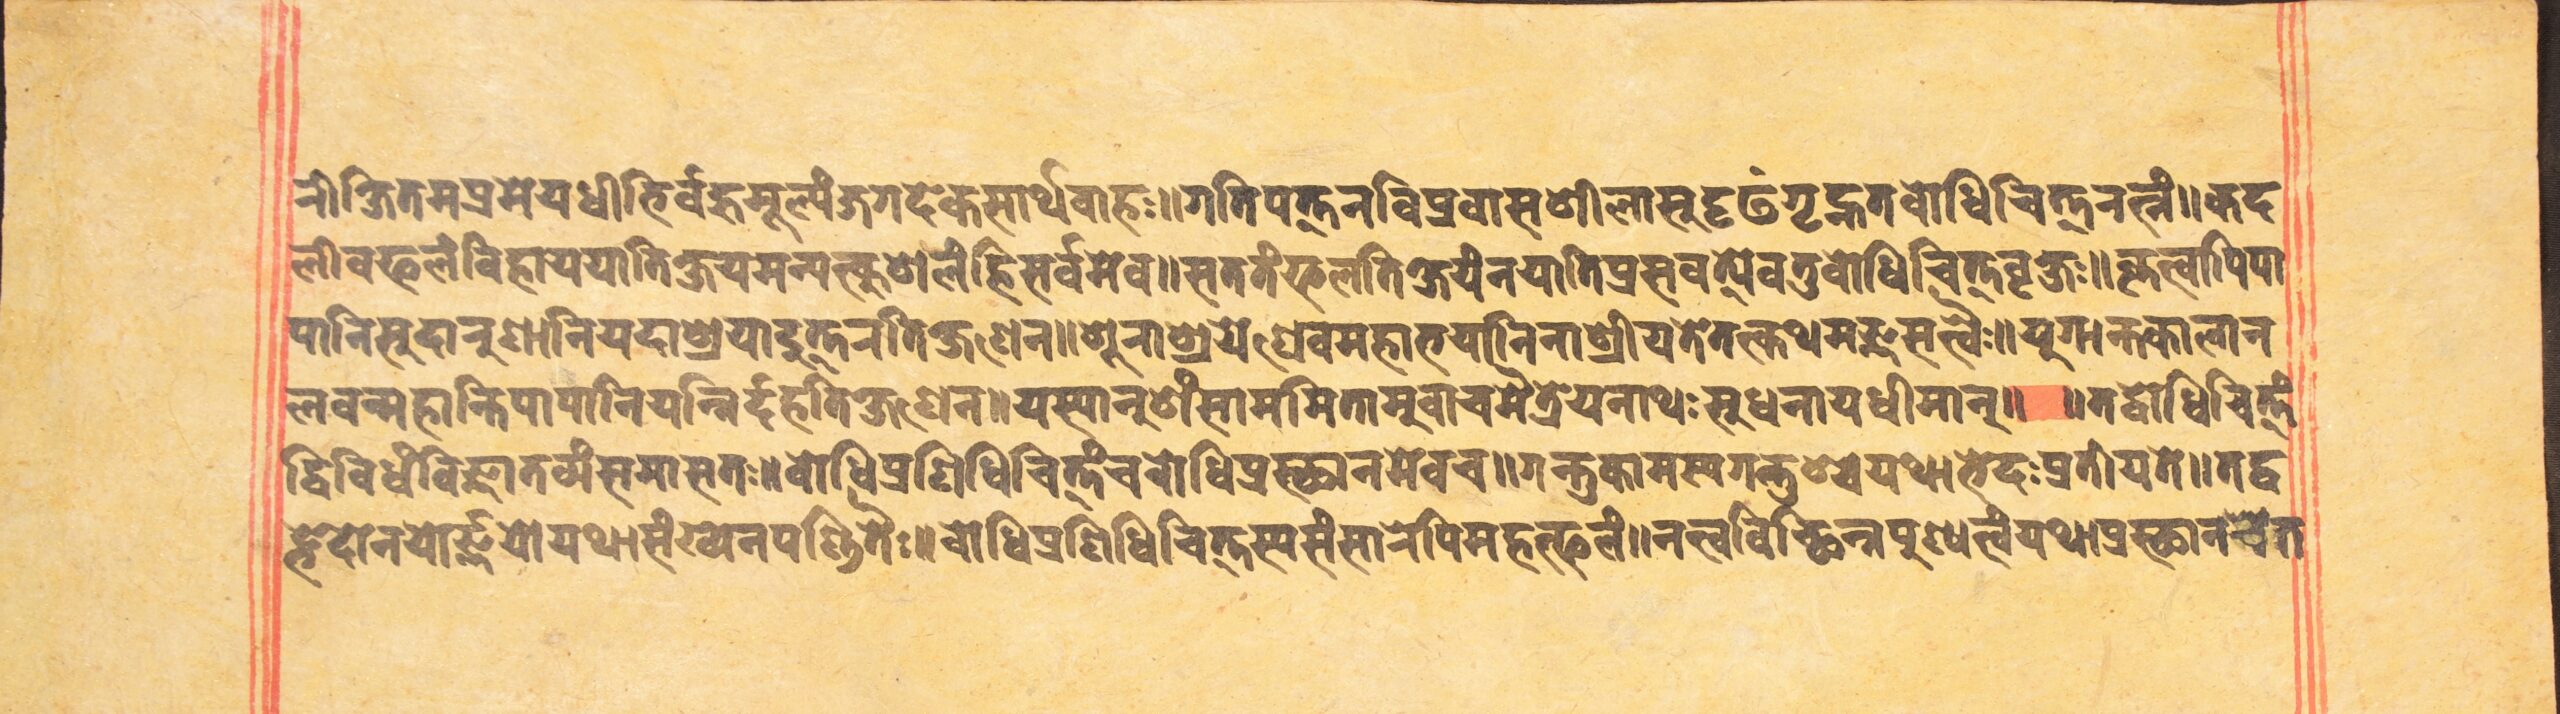 रीक्षितमप्रमेयधीभिर्वहुमूल्यंजगदेकसार्थवाहः॥गतिपत्तनविप्रवासशीलासुदृढंगृह्नतवोधिचित्तरत्नं॥कद
लीवफलंविहाययातिक्षयमन्यत्कुशलंहिसर्वमेव॥सततंफलतिक्षयंनयातिप्रसवत्येवतुवोधिचित्तवृक्षः॥कृत्वापिपा
पानिसुदारुणानियदाश्रयादुत्तरतिक्षणेन॥शूराश्रयेणेवमहाभयानिनाश्रीयतेतत्कथमज्ञसत्त्वैः॥युगान्तकालान
लवन्महान्तिपापानियन्निर्दहतिक्षणेन॥यस्यानुशंसाममितामुवाचमैत्रेयनाथःसुधनायधीमान्॥ ॥तद्वोधिचित्तं
द्विविधंविज्ञातव्यंसमासतः॥वोधिप्रणिधिचित्तंचवोधिप्रस्थानमेवच॥गन्तुकामस्यगन्तुश्चयथाभेदःप्रतीयते॥तद्व
द्भेदोनयोर्ज्ञेयोयथासंख्येनपण्डितैः॥वोधिप्रणिधिचित्तस्यसंसारेपिमहत्फलं॥नत्वविच्छिन्नपुण्यत्वंयथाप्रस्थानचेत